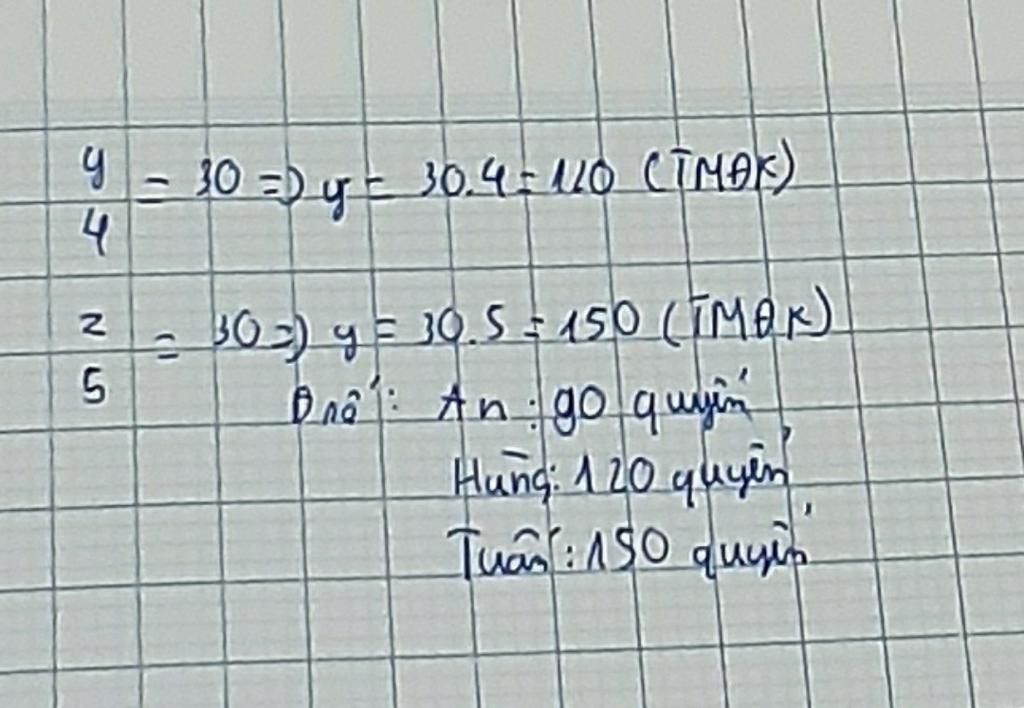 y/4 = 30 => y = 30.4 = 120 (TMĐK)
z/5 = 30 => y = 30.5 = 150 (TMĐK)
Đ số: An: 90 quyển
Hùng: 120 quyển
Tuấn: 150 quyển